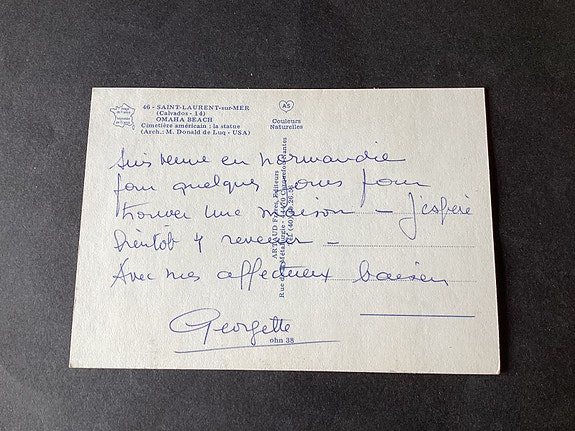 46 - SAINT-LAURENT-sur-MER
(Calvados - 14)
OMAHA BEACH
Cimetière américain : la statue
(Arch.: M. Donald de Luq - USA)
AS
Couleurs
Naturelles
Suis venue en Normandie
pour quelques jours pour
trouver une maison - j'espère
bientôt y revenir -
Avec mes affectueux baisers
Georgette
ARTAUD Frères, Editeurs
Rue de la Métallurgie - 44470 Carquefou-Nantes
ohn 38